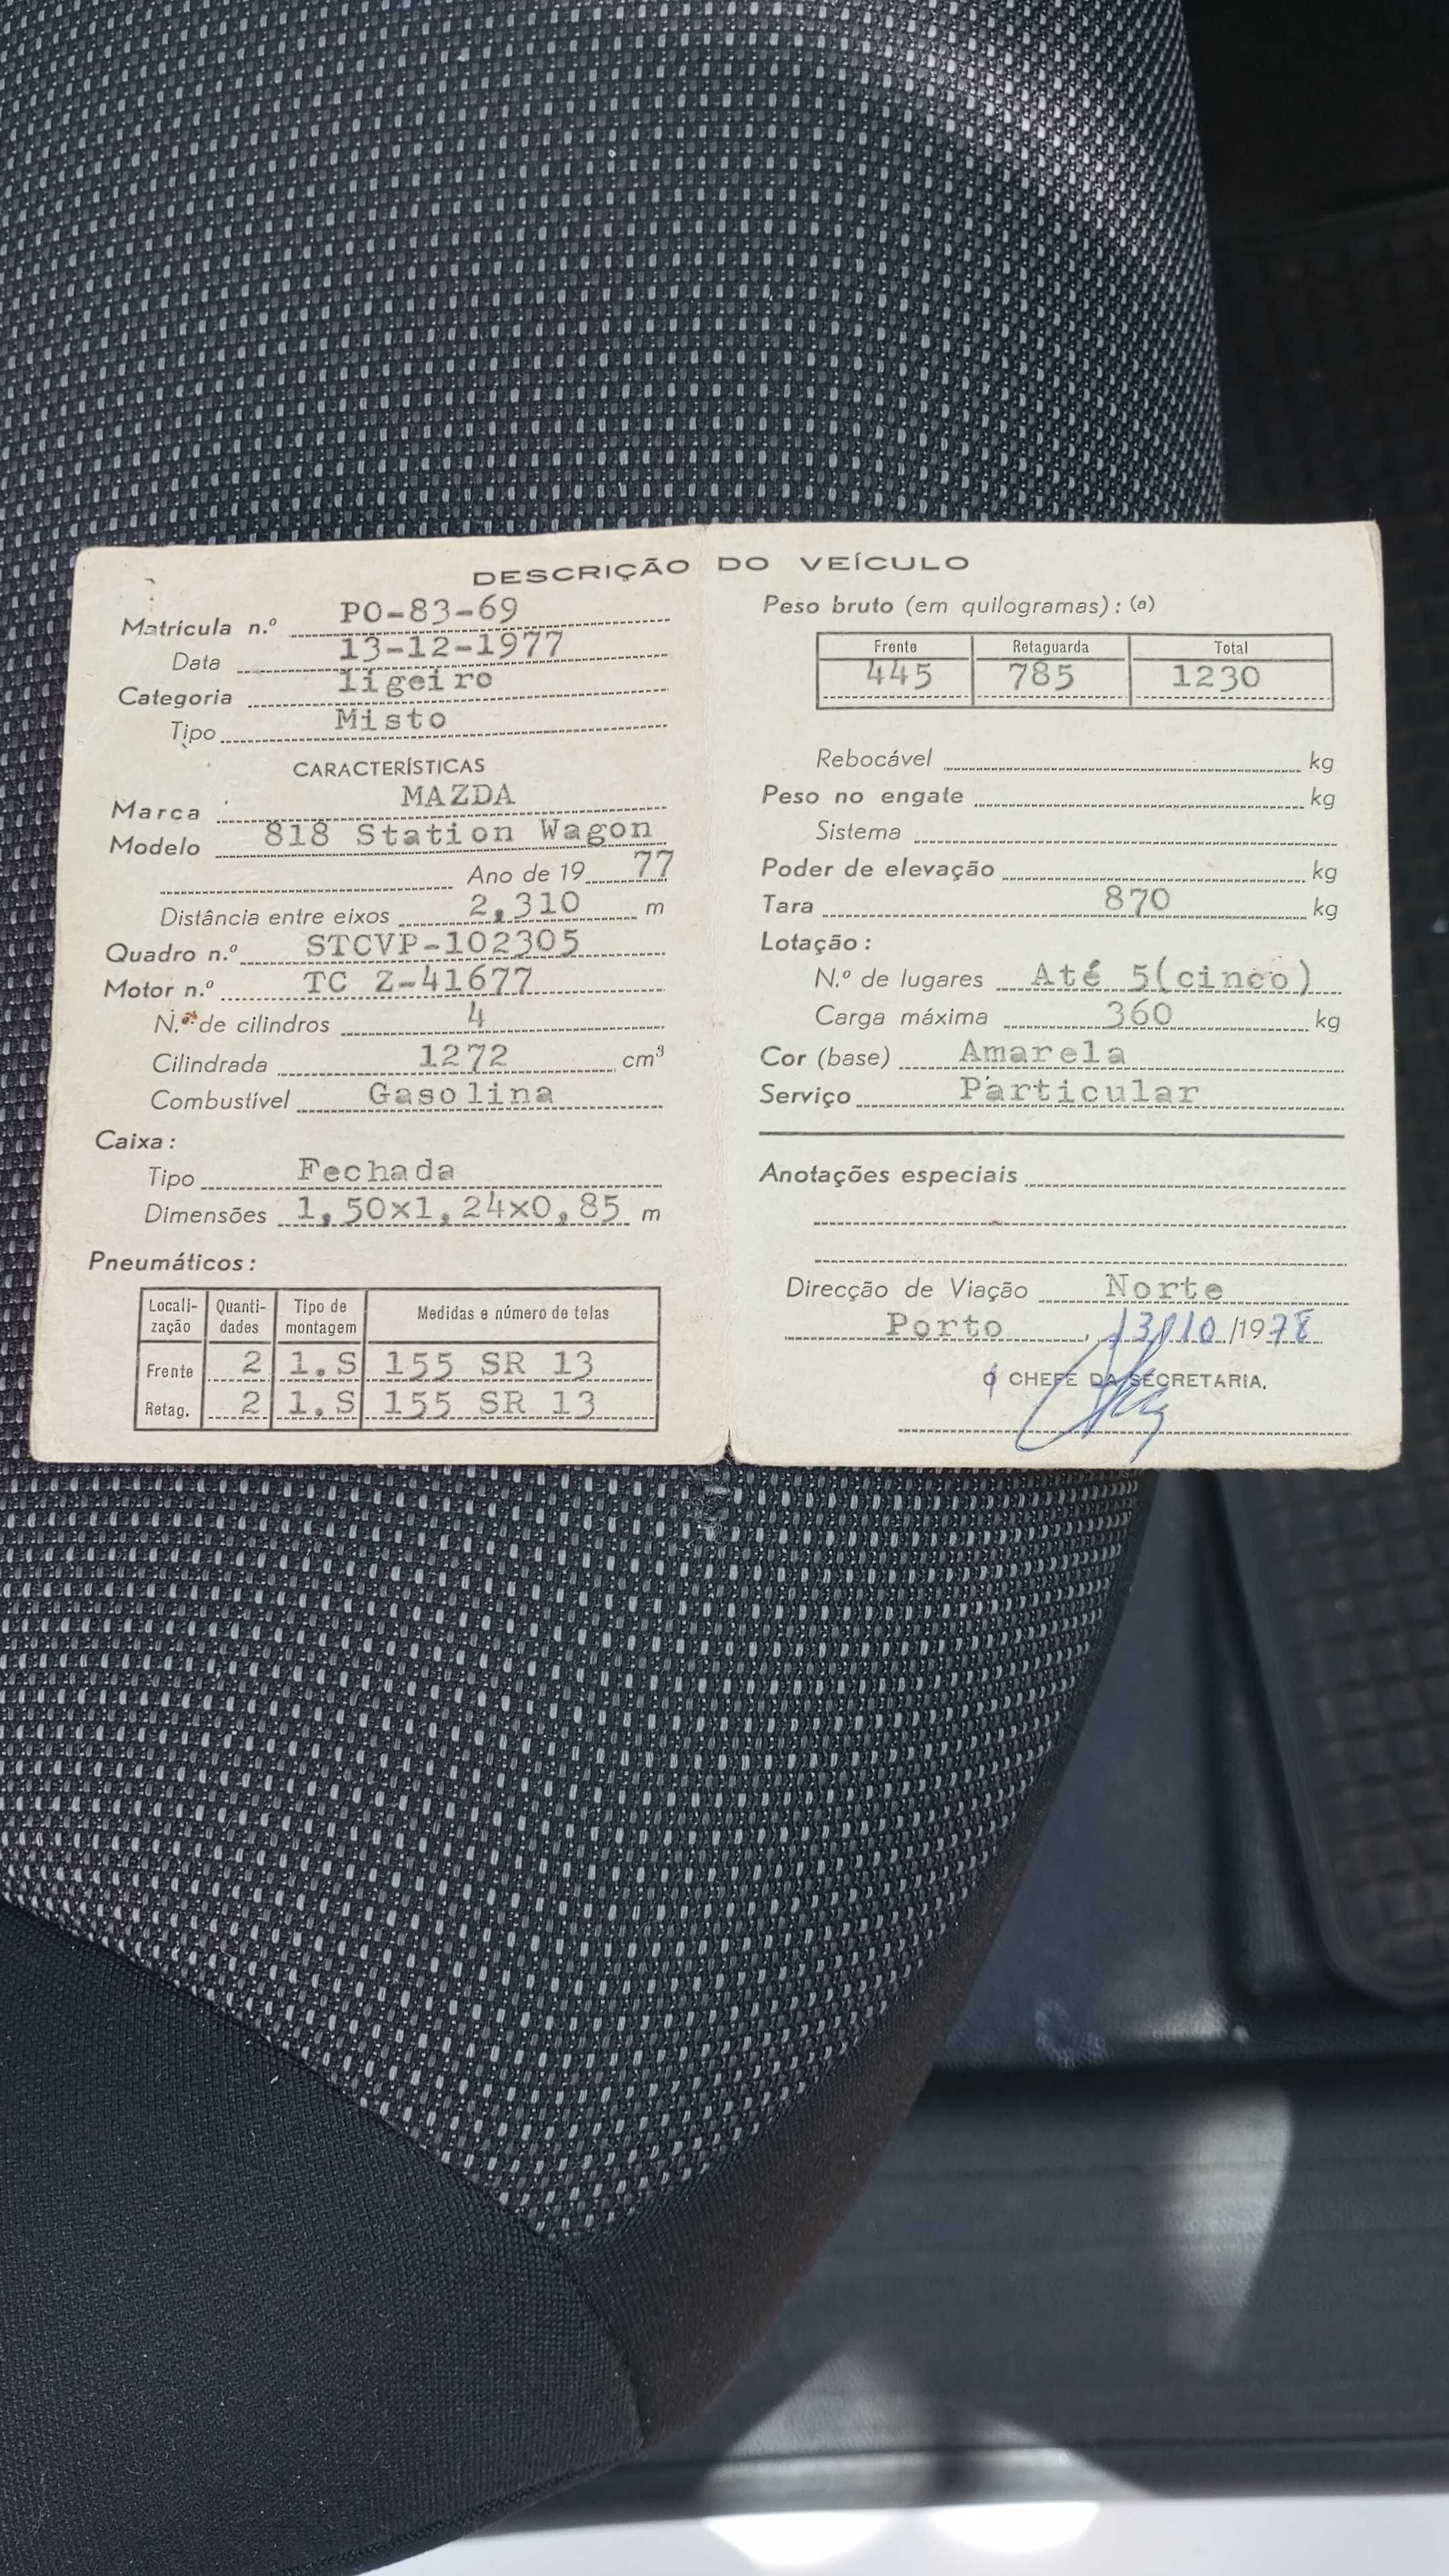 DESCRIÇÃO DO VEÍCULO
Matrícula n.º PO-83-69
Data 13-12-1977
Categoria ligeiro
Tipo Misto
CARACTERÍSTICAS
Marca MAZDA
Modelo 818 Station Wagon
Ano de 19 77
Distância entre eixos 2,310 m
Quadro n.º STCVP-102305
Motor n.º TC Z-41677
N.º de cilindros 4
Cilindrada 1272 cm³
Combustível Gasolina
Caixa:
Tipo Fechada
Dimensões 1,50x1,24x0,85 m
Pneumáticos:
Locali-zação Quanti-dades Tipo de montagem Medidas e número de telas
Frente 2 1.S 155 SR 13
Retag. 2 1.S 155 SR 13
Peso bruto (em quilogramas): (a)
Frente Retaguarda Total
445 785 1230
Rebocável kg
Peso no engate kg
Sistema
Poder de elevação kg
Tara 870 kg
Lotação:
N.º de lugares Até 5(cinco)
Carga máxima 360 kg
Cor (base) Amarela
Serviço Particular
Anotações especiais
Direcção de Viação Norte
Porto, 13/10/1978
O CHEFE DA SECRETARIA,